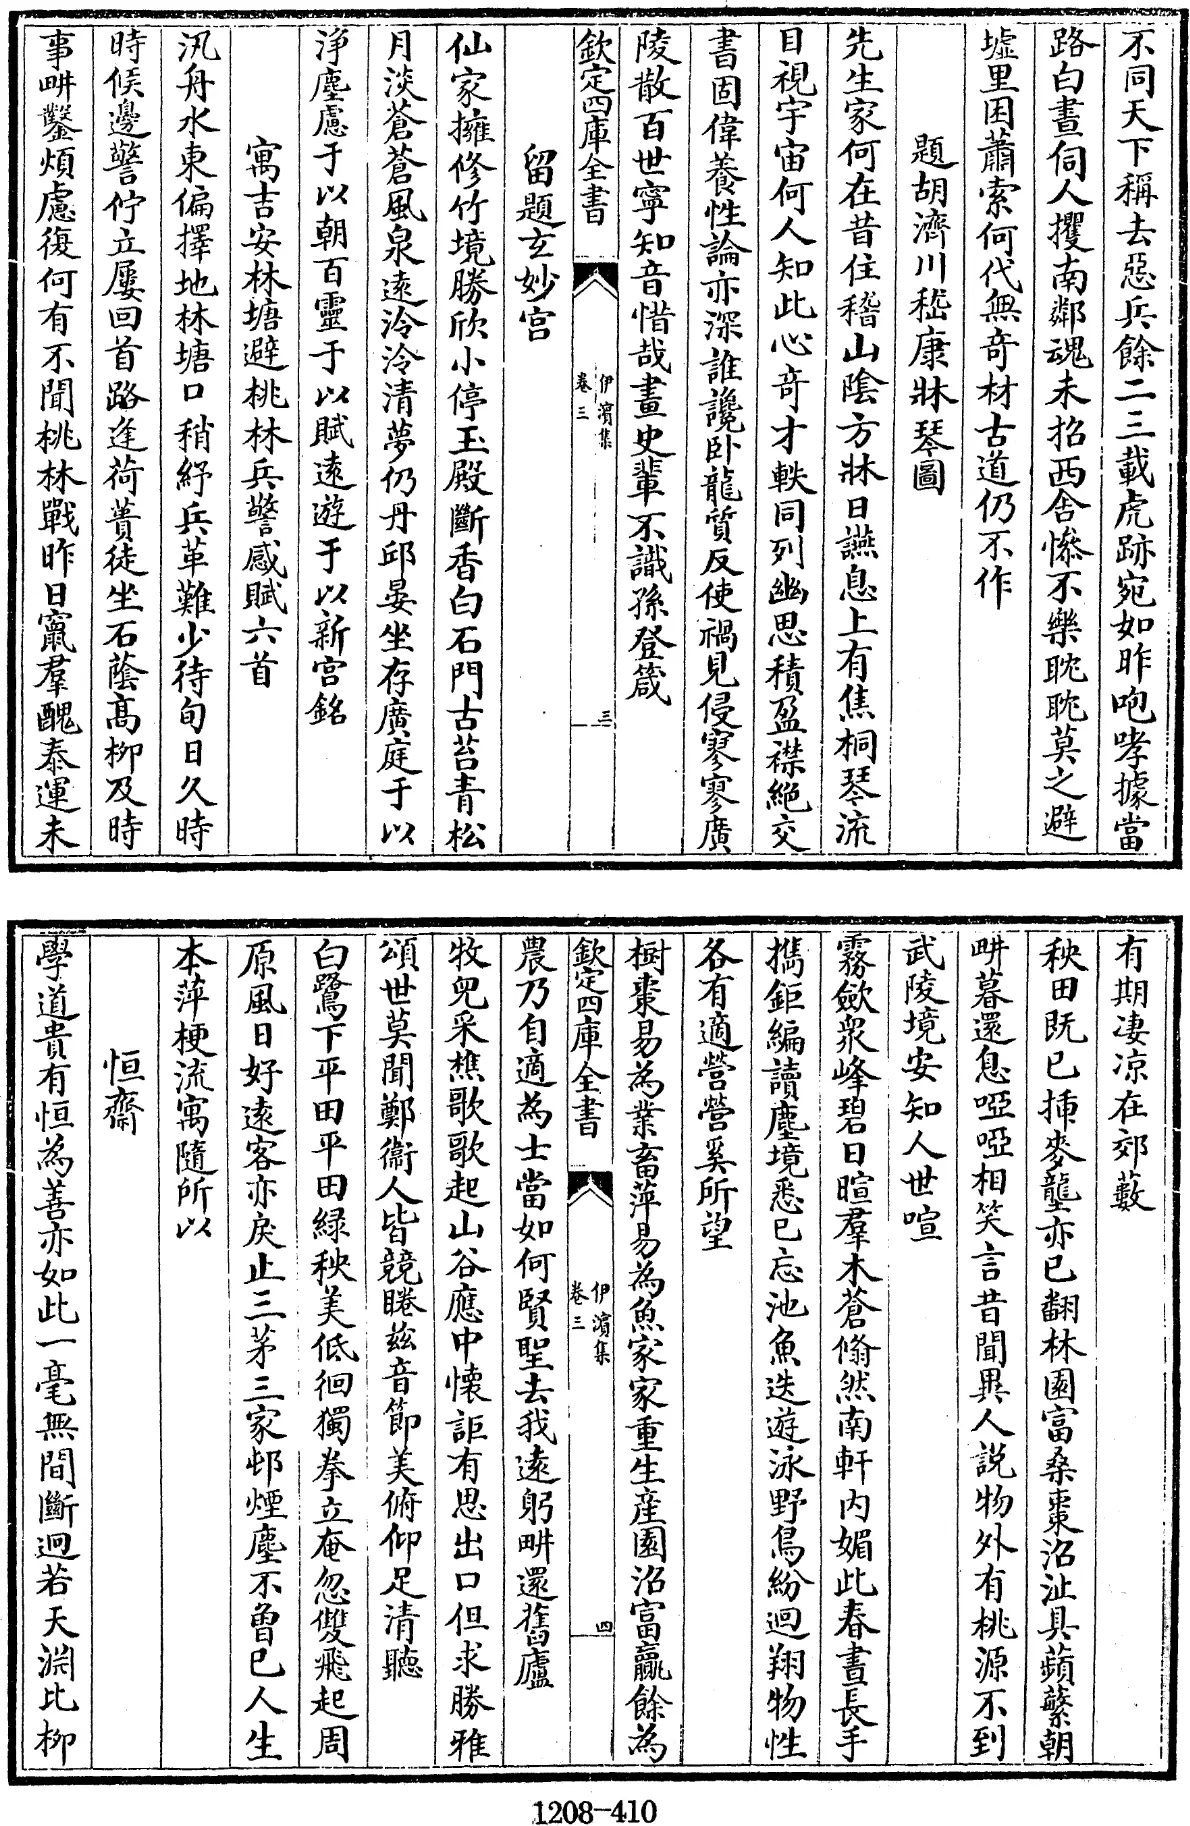 不同天下稱去惡兵餘二三載虎跡宛如昨咆哮據當
路白晝伺人攫南鄰魂未招西舍慘不樂眈眈莫之避
墟里困蕭索何代無奇材古道仍不作
題胡濟川嵇康牀琴圖
先生家何在昔住稽山陰方牀日讌息上有焦桐琴流
目視宇宙何人知此心奇才軼同列幽思積盈襟絶交
書固偉養性論亦深誰讒卧龍質反使禍見侵寥寥廣
陵散百世寧知音惜哉畫史輩不識孫登箴
欽定四庫全書
伊濱集
卷三
三
留題玄妙宫
仙家擁修竹境勝欣小停玉殿斷香白石門古苔青松
月淡蒼蒼風泉遠泠泠清夢仍丹邱晏坐存廣庭于以
浄塵慮于以朝百靈于以賦遠遊于以新宫銘
寓吉安林塘避桃林兵警感賦六首
汎舟水東偏擇地林塘口稍紓兵革難少待旬日久時
時候邊警佇立屢回首路逢荷蕢徒坐石蔭髙柳及時
事畊鑿煩慮復何有不聞桃林戰昨日竄羣醜泰運未
有期凄凉在郊藪
秧田既已揷麥壟亦已翻林園富桑棗沼沚具蘋蘩朝
畊暮還息啞啞相笑言昔聞異人説物外有桃源不到
武陵境安知人世喧
霧歛衆峰碧日暄羣木蒼翛然南軒内媚此春晝長手
攜鉅編讀塵境悉已忘池魚迭遊泳野鳥紛迴翔物性
各有適營營奚所望
樹棗易為業畜萍易為魚家家重生産園沼富贏餘為
欽定四庫全書
伊濱集
卷三
四
農乃自適為士當如何賢聖去我遠躬畊還舊廬
牧兒采樵歌歌起山谷應中懷詎有思出口但求勝雅
頌世莫聞鄭衞人皆競睠兹音節美俯仰足清聽
白鷺下平田平田緑秧美低徊獨拳立奄忽雙飛起周
原風日好遠客亦戾止三茅三家邨煙塵不曾已人生
本萍梗流寓隨所以
恒齋
學道貴有恒為善亦如此一毫無間斷迥若天淵比柳
1208-410